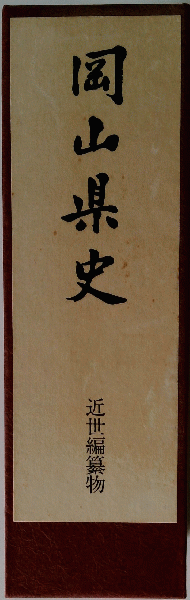 岡山県史
近世編纂物